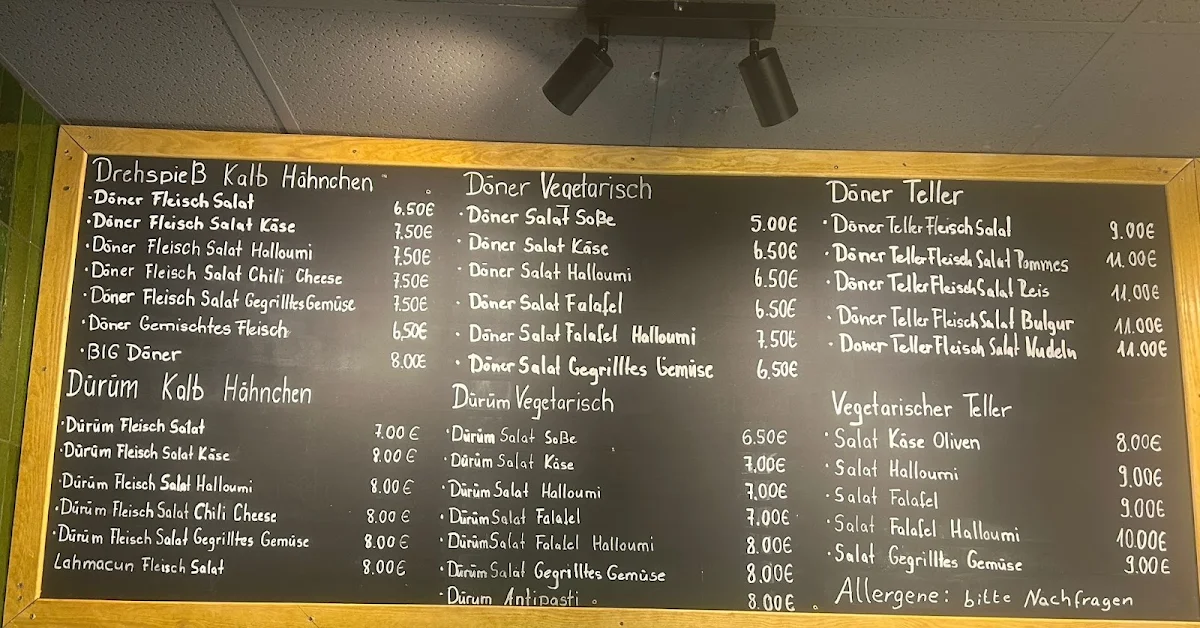 Drehspieß Kalb Hähnchen
· Döner Fleisch Salat 6.50€
· Döner Fleisch Salat Käse 7.50€
· Döner Fleisch Salat Halloumi 7.50€
· Döner Fleisch Salat Chili Cheese 7.50€
· Döner Fleisch Salat Gegrilltes Gemüse 7.50€
· Döner Gemischtes Fleisch 6.50€
· BIG Döner 8.00€
Dürüm Kalb Hähnchen
· Dürüm Fleisch Salat 7.00€
· Dürüm Fleisch Salat Käse 8.00€
· Dürüm Fleisch Salat Halloumi 8.00€
· Dürüm Fleisch Salat Chili Cheese 8.00€
· Dürüm Fleisch Salat Gegrilltes Gemüse 8.00€
Lahmacun Fleisch Salat 8.00€
Döner Vegetarisch
· Döner Salat Soße 5.00€
· Döner Salat Käse 6.50€
· Döner Salat Halloumi 6.50€
· Döner Salat Falafel 6.50€
· Döner Salat Falafel Halloumi 7.50€
· Döner Salat Gegrilltes Gemüse 6.50€
Dürüm Vegetarisch
· Dürüm Salat Soße 6.50€
· Dürüm Salat Käse 7.00€
· Dürüm Salat Halloumi 7.00€
· Dürüm Salat Falafel 7.00€
· Dürüm Salat Falafel Halloumi 8.00€
· Dürüm Salat Gegrilltes Gemüse 8.00€
· Dürum Antipasti 8.00€
Döner Teller
· Döner Teller Fleisch Salat 9.00€
· Döner Teller Fleisch Salat Pommes 11.00€
· Döner Teller Fleisch Salat Reis 11.00€
· Döner Teller Fleisch Salat Bulgur 11.00€
· Döner Teller Fleisch Salat Nudeln 11.00€
Vegetarischer Teller
· Salat Käse Oliven 8.00€
· Salat Halloumi 9.00€
· Salat Falafel 9.00€
· Salat Falafel Halloumi 10.00€
· Salat Gegrilltes Gemüse 9.00€
Allergene: bitte Nachfragen